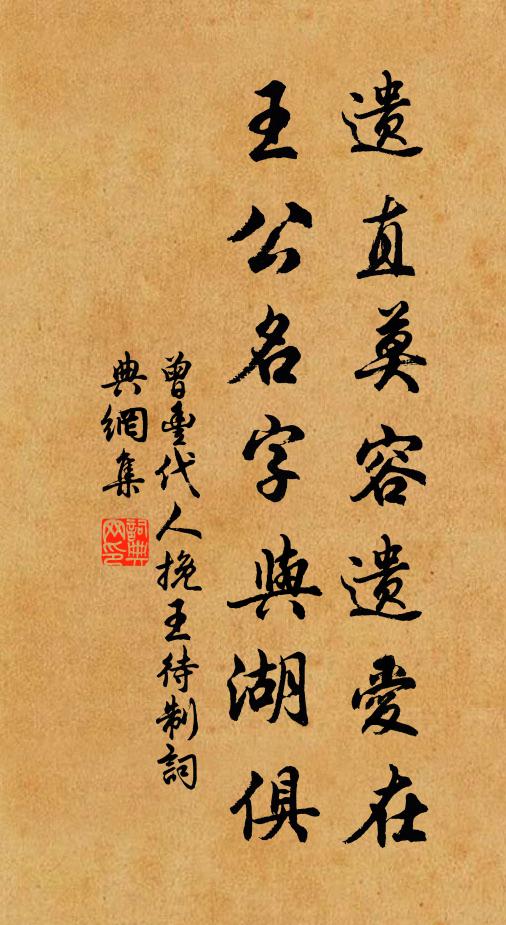 遺直莫容遺愛在
王公名字與湖俱
曾豐代人挽王待制詞
典網集
詞典網印